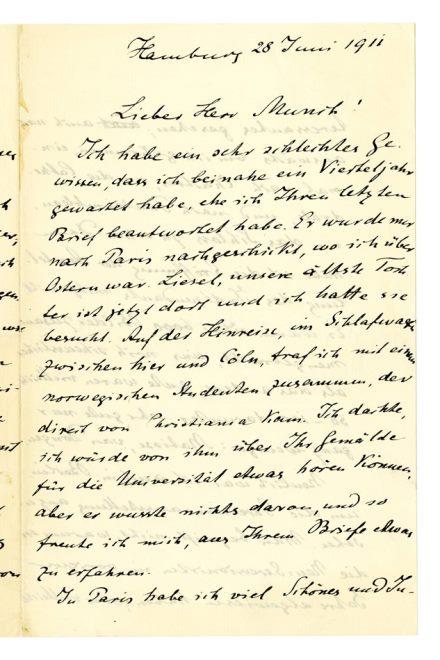 Hamburg 28 Juni 1911
Lieber Herr Munch!
Ich habe ein sehr schlechtes Ge-
wissen, dass ich beinahe ein Vierteljahr
gewartet habe, ehe ich Ihren letzten
Brief beantwortet habe. Er wurde mir
nach Paris nachgeschickt, wo ich über
Ostern war. Liesel, unsere älteste Toch
ter ist jetzt dort und ich hatte sie
besucht. Auf der Hinreise, im Schlafwagen
zwischen hier und Cöln, traf ich mit einem
norwegischen Studenten zusammen, der
direct von Christiania kam. Ich dachte,
ich würde von ihm über Ihr Gemälde
für die Universität etwas hören können,
aber es wusste nichts davon, und so
freute ich mich, aus Ihrem Briefe etwas
zu erfahren.
In Paris habe ich viel Schönes und In-